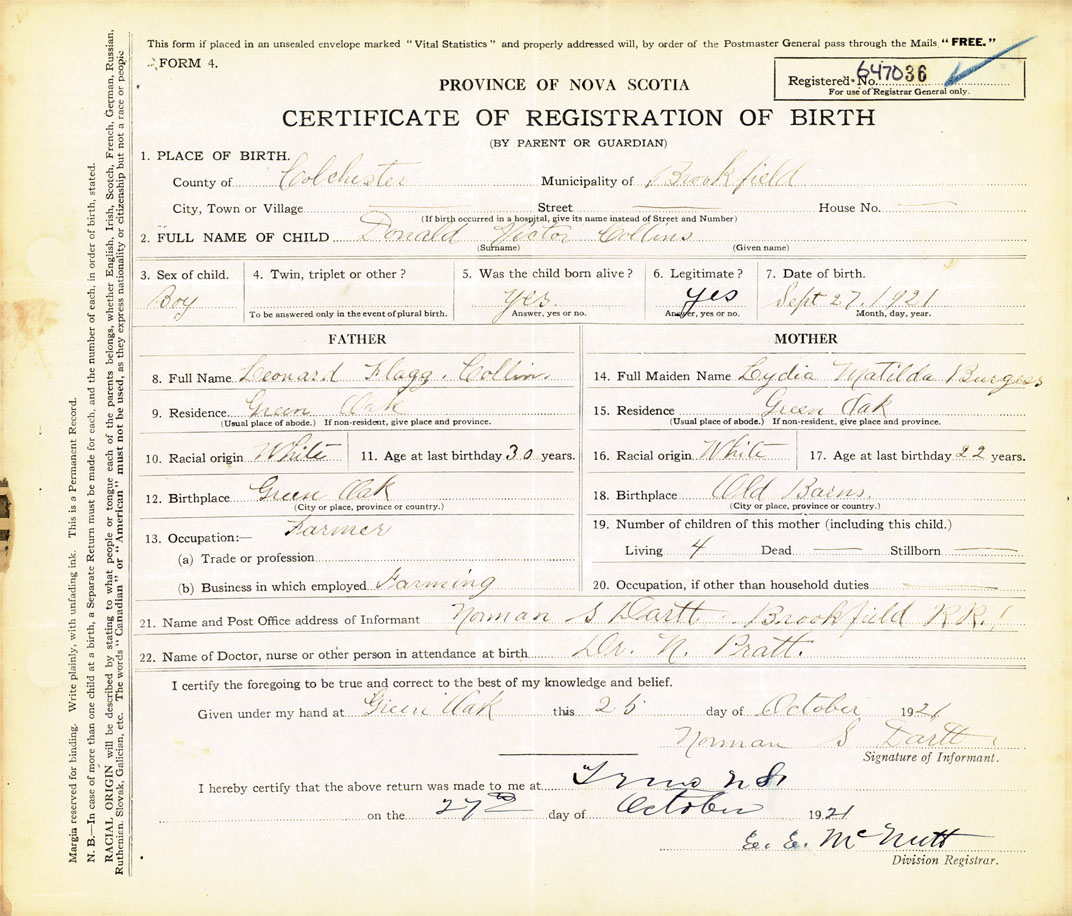 This form if placed in an unsealed envelope marked "Vital Statistics" and properly addressed will, by order of the Postmaster General pass through the Mails "FREE."
FORM 4.
Registered No. 647036
For use of Registrar General only.
PROVINCE OF NOVA SCOTIA
CERTIFICATE OF REGISTRATION OF BIRTH
(BY PARENT OR GUARDIAN)
1. PLACE OF BIRTH.
County of Colchester Municipality of Brookfield
City, Town or Village Street House No.
(If birth occurred in a hospital, give its name instead of Street and Number)
2. FULL NAME OF CHILD Donald Victor Collins
(Surname) (Given name)
3. Sex of child. 4. Twin, triplet or other? 5. Was the child born alive? 6. Legitimate? 7. Date of birth.
Boy yes yes Sept 27, 1921
To be answered only in the event of plural birth. Answer, yes or no. Answer, yes or no. Month, day, year.
FATHER
8. Full Name Leonard Flagg Collins
9. Residence Green Oak
(Usual place of abode.) If non-resident, give place and province.
10. Racial origin White 11. Age at last birthday 30 years.
12. Birthplace Green Oak
(City or place, province or country.)
13. Occupation:— Farmer
(a) Trade or profession
(b) Business in which employed Farming
MOTHER
14. Full Maiden Name Lydia Matilda Burgess
15. Residence Green Oak
(Usual place of abode.) If non-resident, give place and province.
16. Racial origin White 17. Age at last birthday 22 years.
18. Birthplace Old Barns.
(City or place, province or country.)
19. Number of children of this mother (including this child.)
Living 4 Dead Stillborn
20. Occupation, if other than household duties
21. Name and Post Office address of Informant Norman S Dartt Brookfield R.R.1
22. Name of Doctor, nurse or other person in attendance at birth Dr. N. Pratt.
I certify the foregoing to be true and correct to the best of my knowledge and belief.
Given under my hand at Green Oak this 25 day of October 1921
Norman S Dartt
Signature of Informant.
I hereby certify that the above return was made to me at Truro N S
on the 27th day of October 1921
E. E. McNutt
Division Registrar.
Margin reserved for binding. Write plainly, with unfading ink. This is a Permanent Record.
N. B.—In case of more than one child at a birth, a Separate Return must be made for each, and the number of each, in order of birth, stated.
RACIAL ORIGIN will be described by stating to what people or tongue each of the parents belongs, whether English, Irish, Scotch, French, German, Russian,
Ruthenian, Slovak, Galician, etc. The words "Canadian" or "American" must not be used, as they express nationality or citizenship but not a race or people